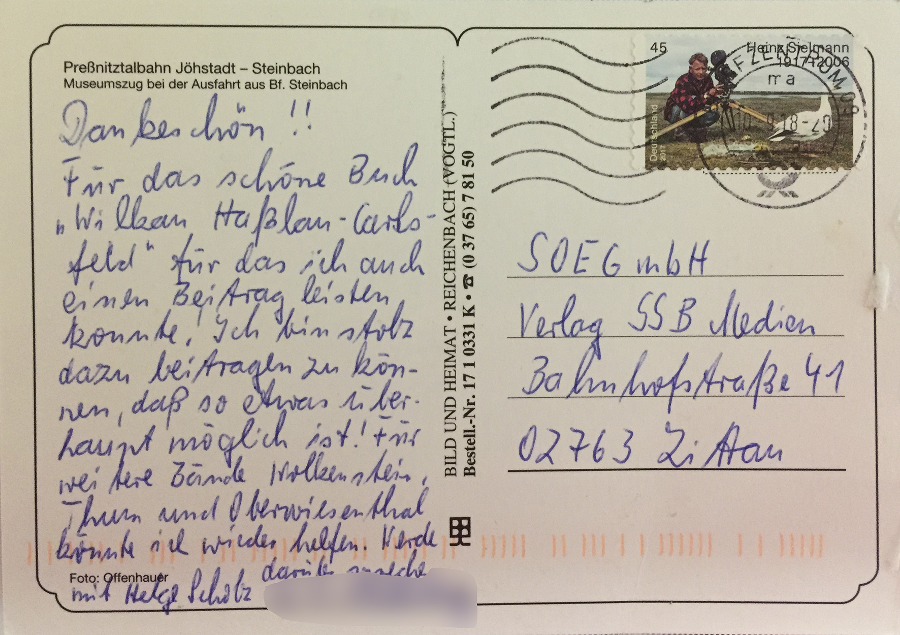 Preßnitztalbahn Jöhstadt – Steinbach
Museumszug bei der Ausfahrt aus Bf. Steinbach
Dankeschön !!
Für das schöne Buch
„Wilkau Haßlau-Carls-
feld" für das ich auch
einen Beitrag leisten
konnte! Ich bin stolz
dazu beitragen zu kön-
nen, daß so etwas über-
haupt möglich ist! Für
weitere Bände Wolkenstein,
Thum und Oberwiesenthal
könnte ich wieder helfen. Werde
darüber
mit Helge Scholz
Foto: Offenhauer
BILD UND HEIMAT • REICHENBACH (VOGTL.)
Bestell.-Nr. 17 1 0331 K • ☎ (0 37 65) 7 81 50
45
Heinz Sielmann
1917–2006
Deutschland
SOEG mbH
Verlag SSB Medien
Bahnhofstraße 41
02763 Zittau